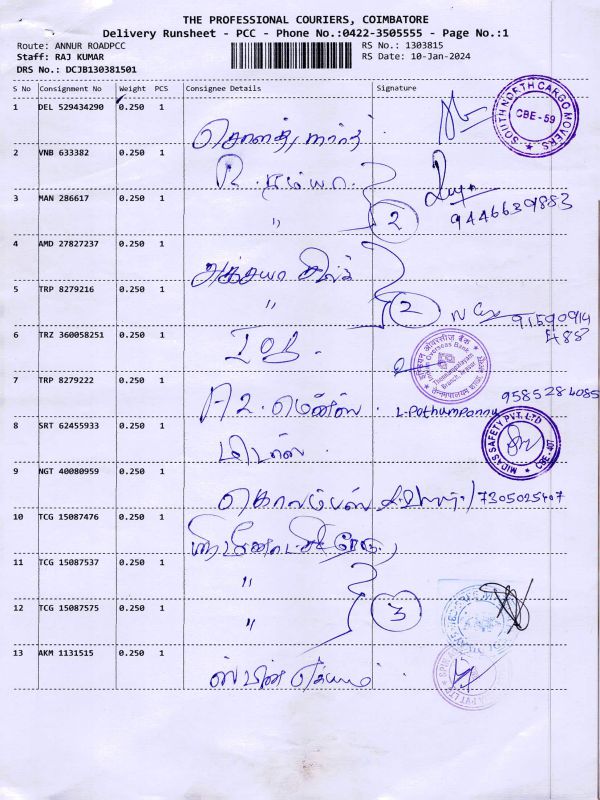 THE PROFESSIONAL COURIERS, COIMBATORE
Delivery Runsheet - PCC - Phone No.:0422-3505555 - Page No.:1
Route: ANNUR ROADPCC RS No.: 1303815
Staff: RAJ KUMAR RS Date: 10-Jan-2024
DRS No.: DCJB130381501
S No Consignment No Weight PCS Consignee Details Signature
1 DEL 529434290 0.250 1
SOUTH NORTH CARGO MOVERS
CBE - 59
2 VNB 633382 0.250 1
R. ரம்யா
3 MAN 286617 0.250 1 " 2 9446639883
4 AMD 27827237 0.250 1
5 TRP 8279216 0.250 1 " 2
6 TRZ 360058251 0.250 1 IOB.
Indian Overseas Bank
7 TRP 8279222 0.250 1 9585284085
A2. மென்ஸ். L. Pothumponnu
8 SRT 62455933 0.250 1 மிடாஸ்.
MIDAS SAFETY PVT. LTD
CBE - 407
9 NGT 40080959 0.250 1
கொலம்பஸ் 7305025407
10 TCG 15087476 0.250 1
11 TCG 15087537 0.250 1 "
12 TCG 15087575 0.250 1 " 3
13 AKM 1131515 0.250 1
ஸ்பின்